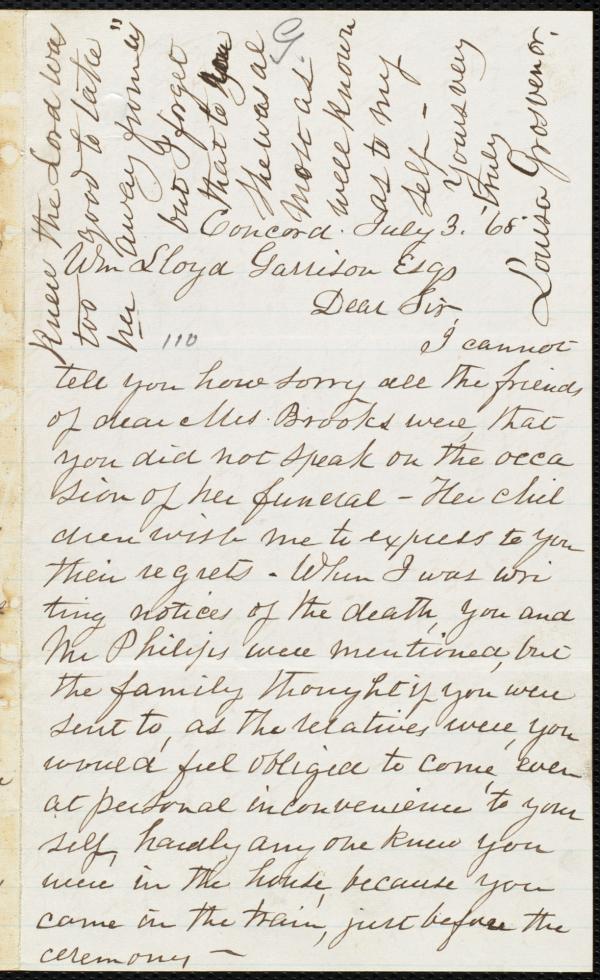 Concord. July 3. '68
Wm Lloyd Garrison Esqr
Dear Sir
110
I cannot
tell you how sorry all the friends
of dear Mrs. Brooks were, that
you did not speak on the occa
sion of her funeral - Her chil
dren wish me to express to you
their regrets - When I was wri
ting notices of the death, you and
Mr Philips were mentioned, but
the family thought if you were
sent to, as the relatives were, you
would feel obliged to come, even
at personal inconvenience to your
self, hardly any one knew you
were in the house, because you
came in the train, just before the
ceremony -
knew the Lord was
too good to take
her away from us"
but I forget
that to you
she was al
most as
well known
as to my
self -
Yours very
truly
Louisa Grosvenor.
G.